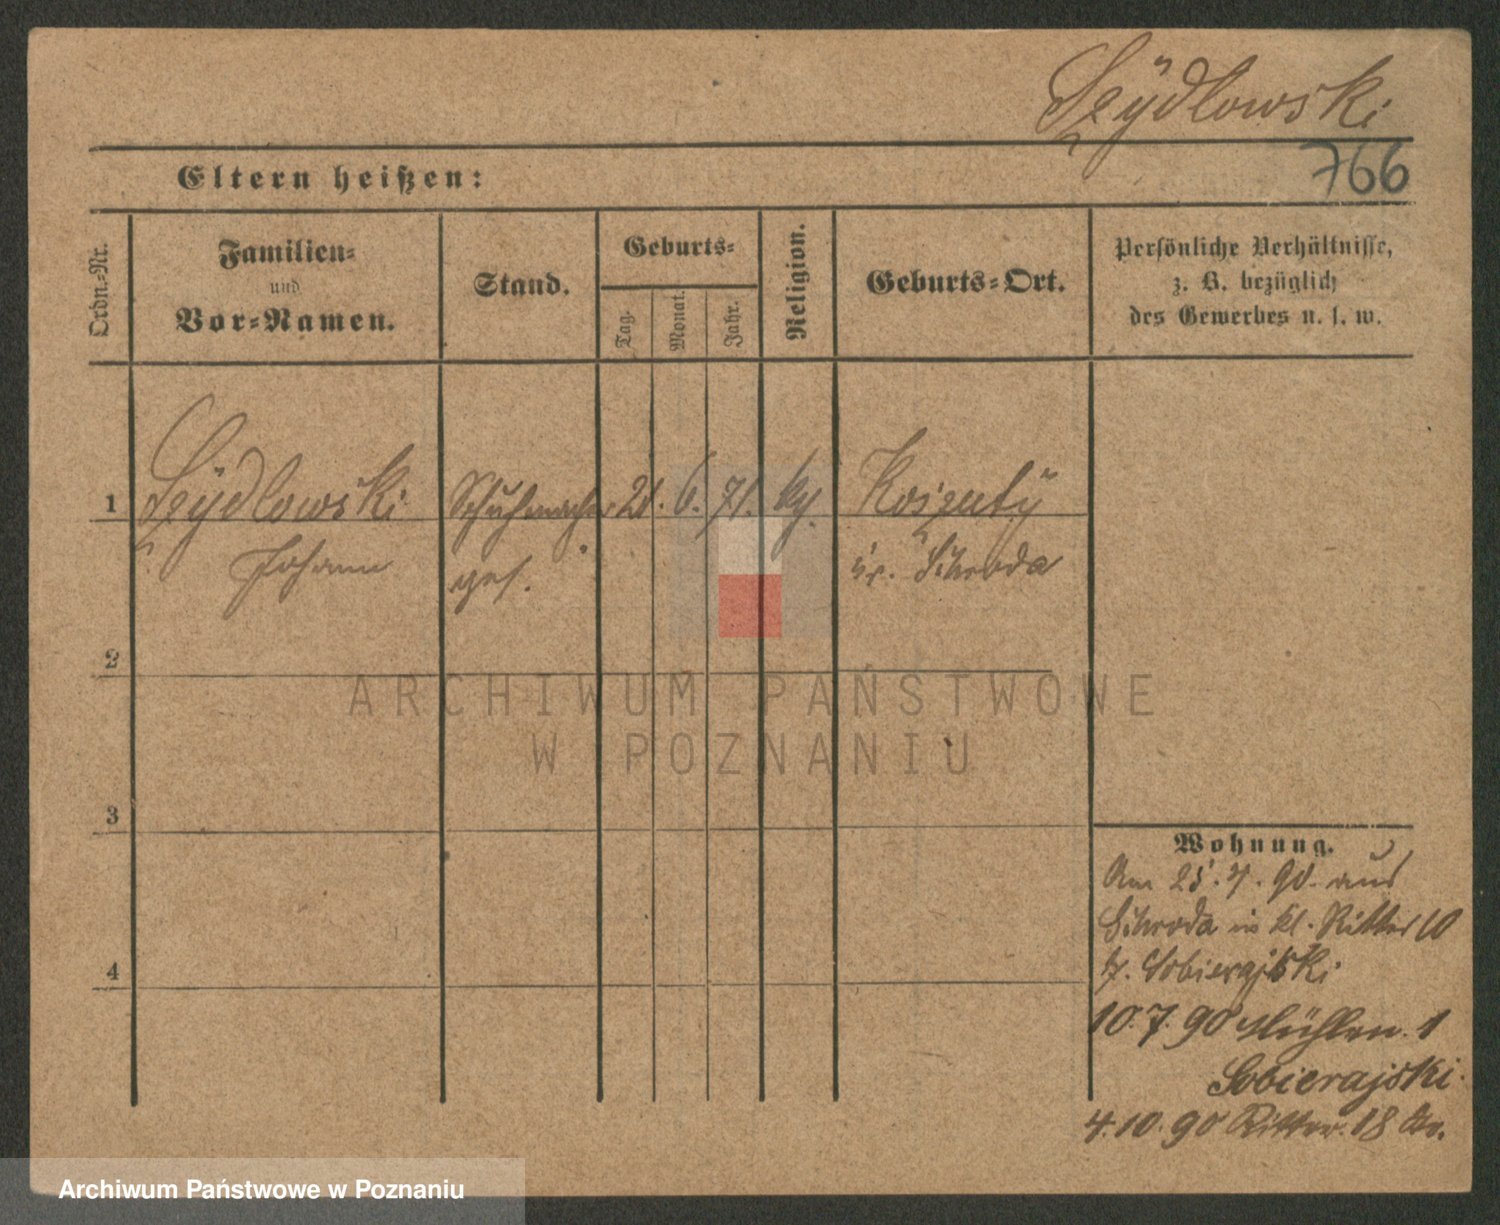 Szÿdlowski
766
Eltern heißen:
Ordn.-Nr.
Familien-
und
Vor-Namen.
Stand.
Geburts-
Tag.
Monat.
Jahr.
Religion.
Geburts-Ort.
Persönliche Verhältnisse,
z. B. bezüglich
des Gewerbes u. s. w.
1
Szÿdlowski
Johann
Schuhmacher
ges.
21. 6. 71.
Koszutÿ
Kr. Schroda
2
3
4
Wohnung.
Am 25. 7. 90. aus
Schroda in Kl. Ritter 10
b. Sobierajski
10. 7. 90 Mühlen. 1
Sobierajski.
4. 10. 90 Ritter. 18
ARCHIWUM PAŃSTWOWE
W POZNANIU
Archiwum Państwowe w Poznaniu